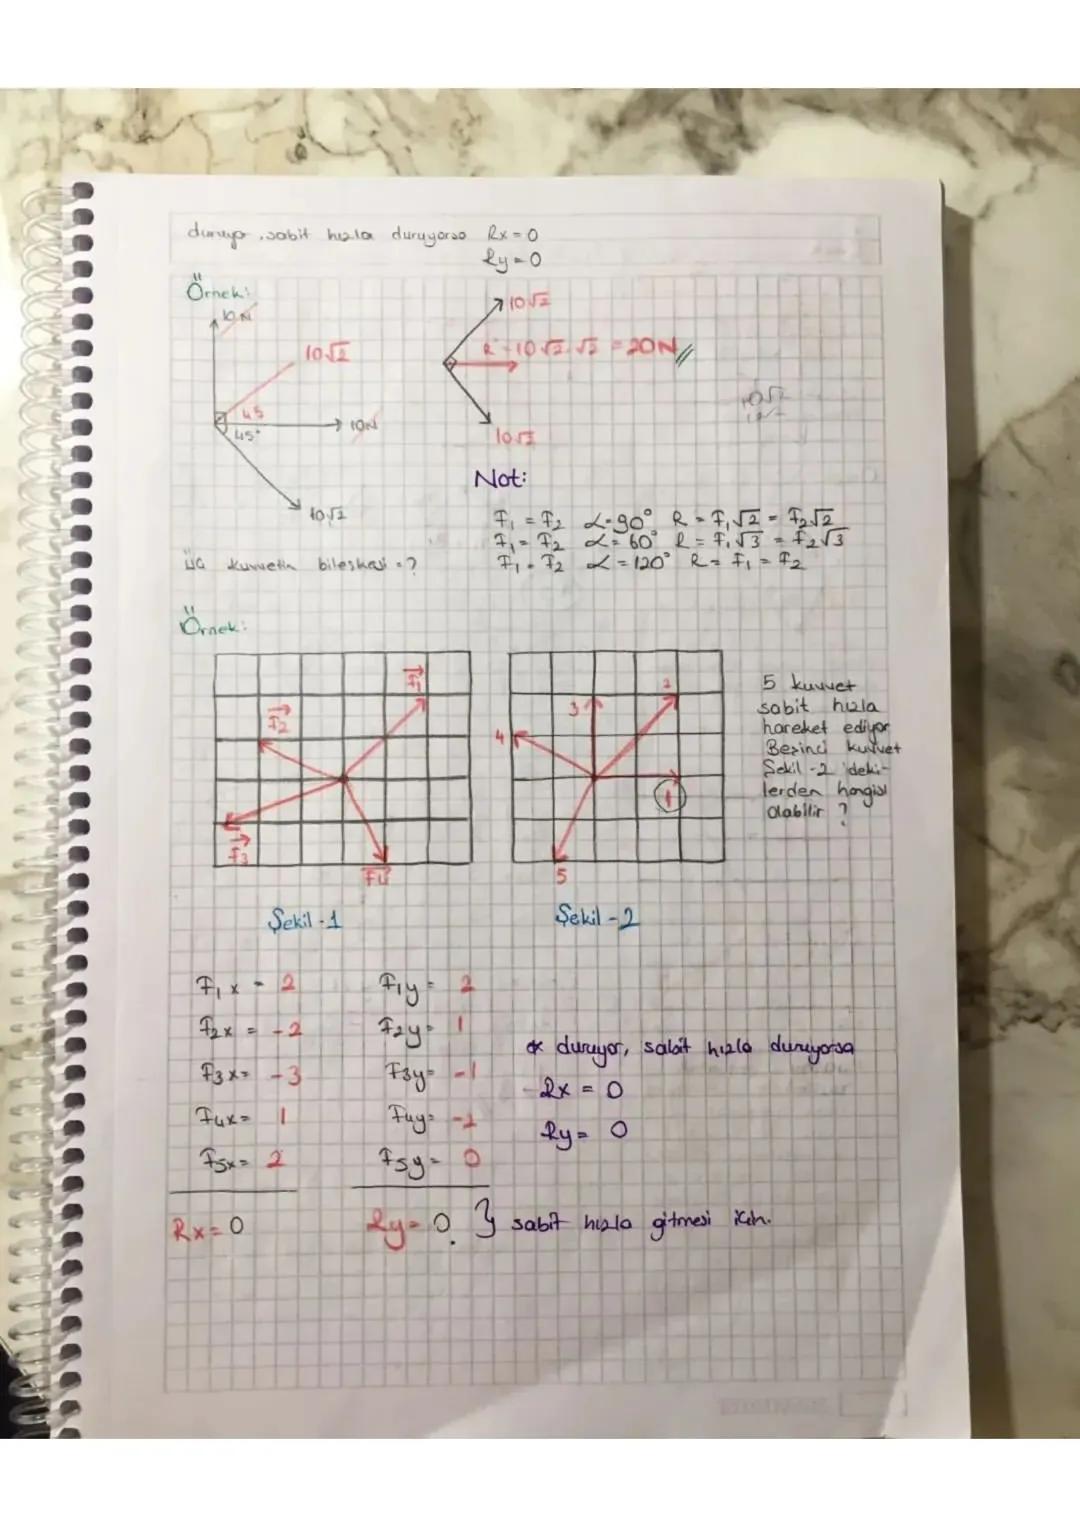 duruyor, sabit hızla duruyorsa Rx = 0
Ry = 0
Örnek:
10 N
10√2
45
45°
10N
10√2
10√2
R = 10√2.√2 = 20N
10√2
10√2
Not:
F₁ = F₂ α = 90° R = F₁√2 = F₂√2
F₁ = F₂ α = 60° R = F₁√3 = F₂√3
F₁ = F₂ α = 120° R = F₁ = F₂
üç kuvvetin bileşkesi = ?
Örnek:
F₁
F₂
F₃
F4
Şekil-1
1
2
3
4
5
Şekil-2
5 kuvvet
sabit hızla
hareket ediyor
Beşinci kuvvet
Şekil-2 'deki-
lerden hangisi
olabilir ?
F₁x = 2 F₁y = 2
F₂x = -2 F₂y = 1
F₃x = -3 F₃y = -1
F₄x = 1 F₄y = -2
F₅x = 2 F₅y = 0
Rx = 0 Ry = 0 } sabit hızla gitmesi için.
* duruyor, sabit hızla duruyorsa
Rx = 0
Ry = 0